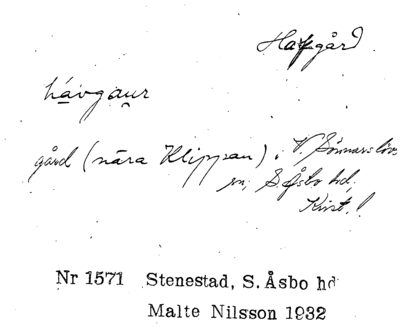 Hafgård
hávgaur
gård (nära Klippan). V. Sönnarslövs
sn, S. Åsbo hd,
Krist. l.
Nr 1571 Stenestad, S. Åsbo hd
Malte Nilsson 1932